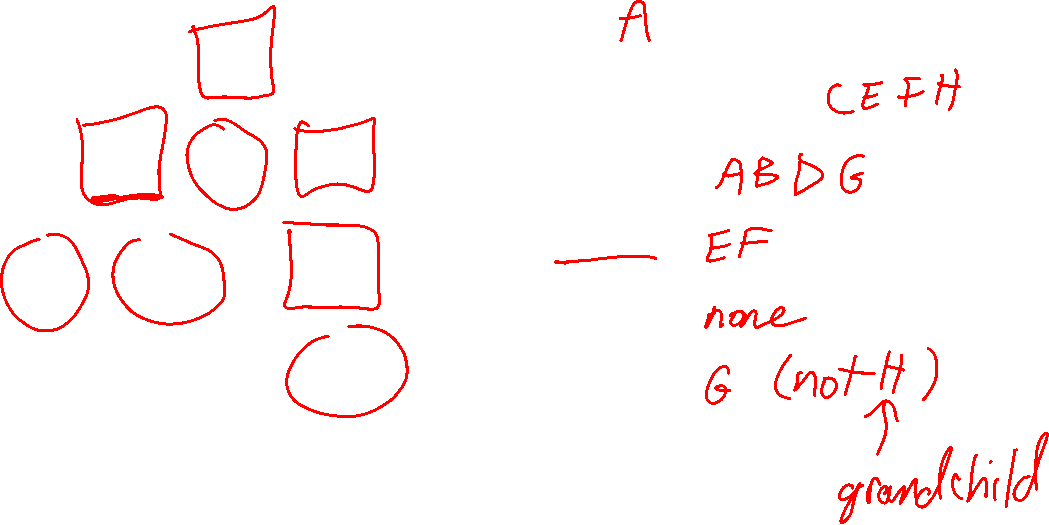 A
CEFH
ABDG
EF
none
G (not H)
grandchild